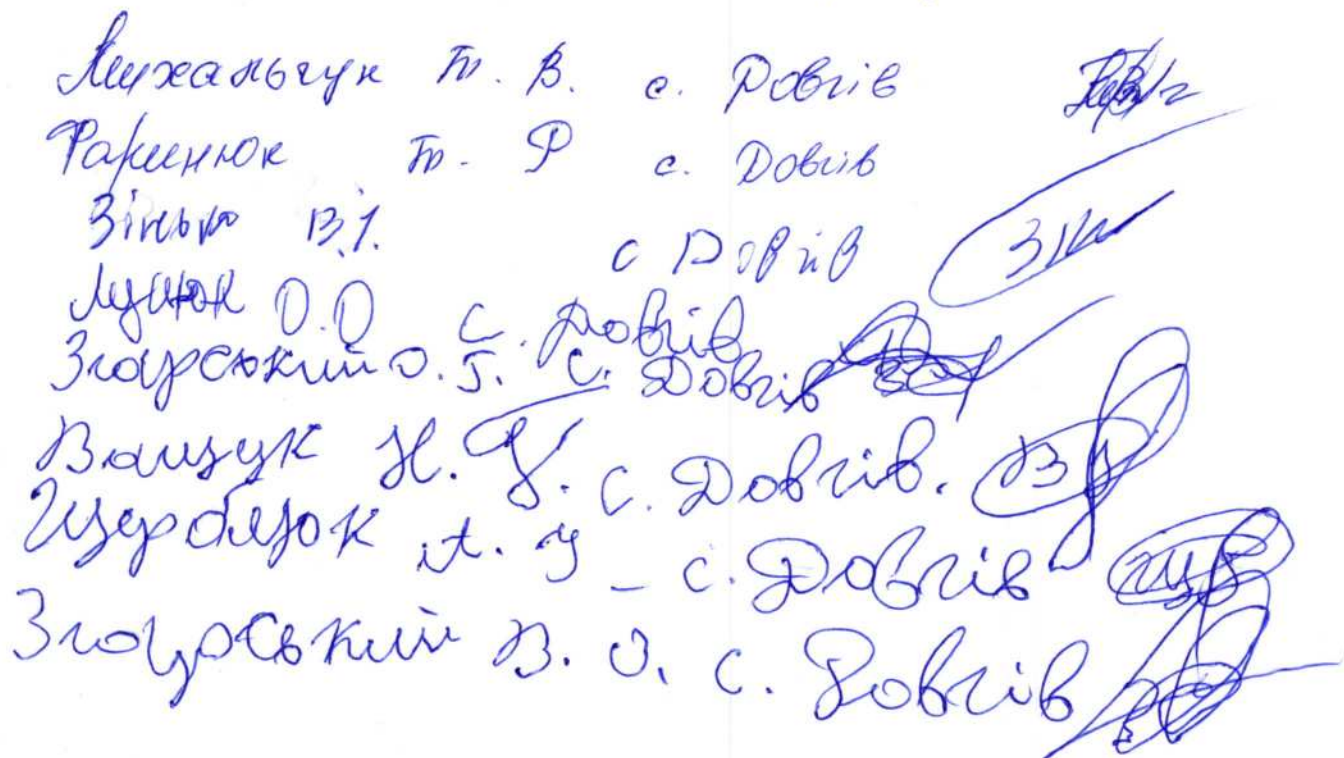 Михальчук Т. В. с. Довгів
Т. Р с. Довгів
Зінько В.І. с Довгів
Луцюк О.О с. Довгів
Згоурський О. Г. с. Довгів
Ващук Н. У. с. Довгів.
А. У - с. Довгів
Згоурський В. О. с. Довгів